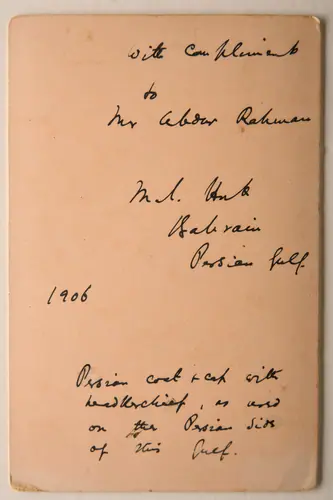 with compliments
to
Mr Abdur Rahman
M. I.
Bahrain
Persian Gulf.
1906
Persian coat & cap with
headkerchief, as used
on the Persian side
of this Gulf.